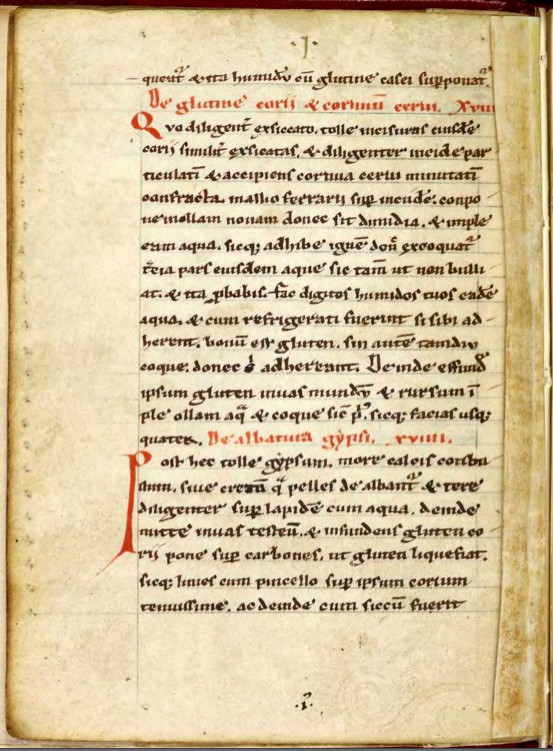 ·I·
querat̄ & ita humidū cū glutine casei supponat̄.
De glutine corii & cornuū cerui. xviii
Quo diligent̄ exsiccato, tolle incisuras eiusdē
corii similit̄ exsicatas, & diligenter incide par
ticulatī & accipiens cornua cerui minutatī
confracta. mallio ferrarij sup̄ incudē. conpo
ne in ollam nouam donec sit dimidia, & imple
eam aqua. sicq; adhibe ignē donc̄ excoquat̄
tēia pars eiusdem aque sic tam̄ ut non bulli
at. & ita p̄babis. fac digitos humidos tuos eadē
aqua. & cum refrigerati fuerint si sibi ad
herent. bonū est gluten. sin autē tamdiu
coque. donec adhereant. Deinde effunde
ipsum gluten in uas mundū & rursum ī
ple ollam aq̄ & coque sic p̄. sicq; facias usq;
quater. De albatura gypsi. xviiii.
Post hec tolle gypsum. more calcis conbu
stum. siue cretā q̄ pelles dealbant̄ & tere
diligenter sup̄ lapidē cum aqua. deinde
mitte in uas testeū. & infundens gluten co
rij pone sup̄ carbones. ut gluten liquefiat.
sicq; linies cum pincello sup̄ ipsum corium
tenuissime. ac deinde cum siccū fuerit